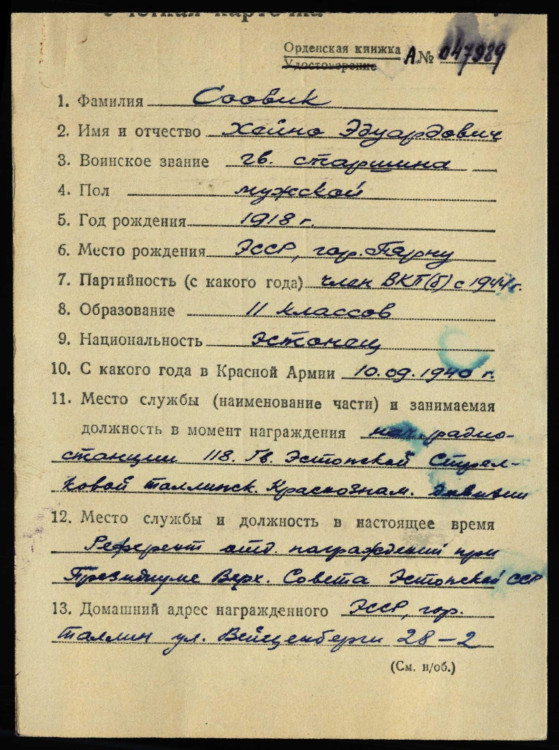 Учетная карточка
Орденская книжка
Удостоверение А № 047989
1. Фамилия Соовик
2. Имя и отчество Хейно Эдуардович
3. Воинское звание гв. старшина
4. Пол мужской
5. Год рождения 1918 г.
6. Место рождения ЭССР, гор. Пярну
7. Партийность (с какого года) член ВКП(б) с 1944 г.
8. Образование 11 классов
9. Национальность эстонец
10. С какого года в Красной Армии 10.09.1940 г.
11. Место службы (наименование части) и занимаемая
должность в момент награждения нач. радио-
станции 118. Гв. Эстонской Стрел-
ковой Таллинск. Краснознам. дивизии
12. Место службы и должность в настоящее время
Референт отд. награждений при
Президиуме Верх. Совета Эстонской ССР
13. Домашний адрес награжденного ЭССР, гор.
Таллин ул. Вейценберги 28-2
(См. н/об.)